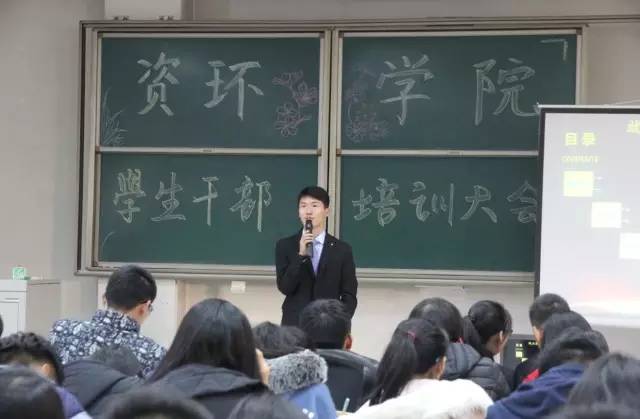 资环学院
学生干部培训大会
目录